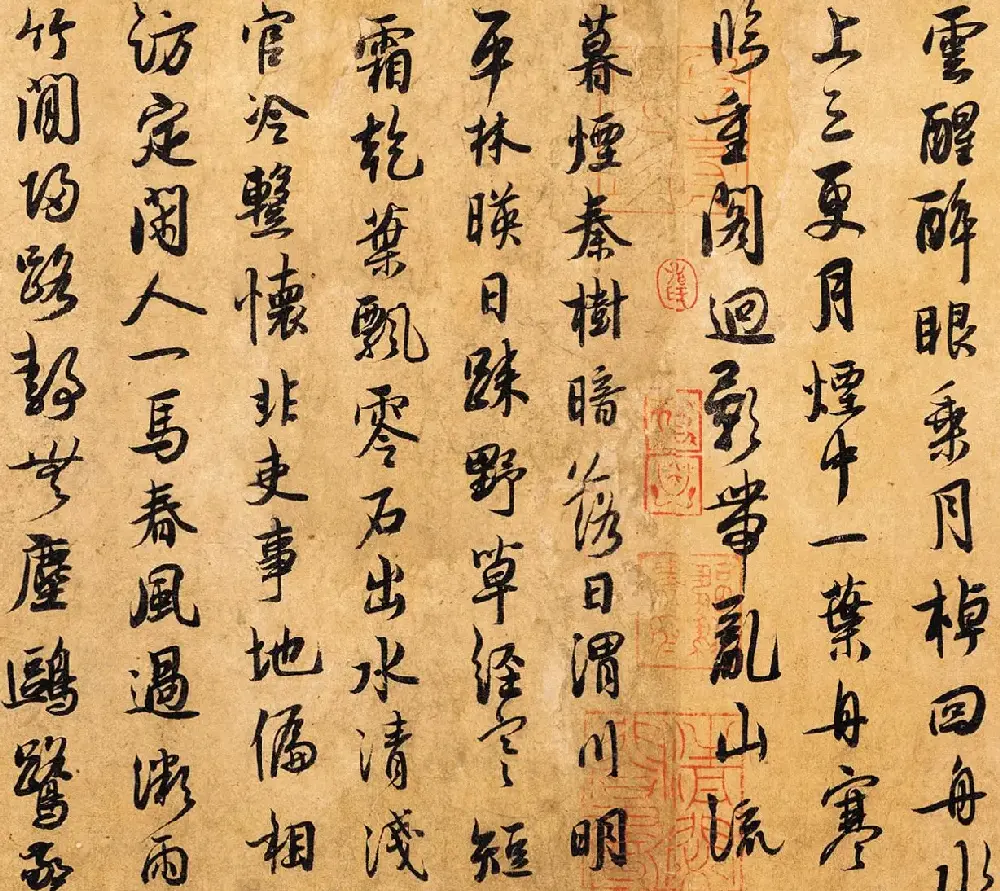 雲醒醉眼乘月棹回舟水
上三更月煙中一葉舟寒
臨重閣迥影帶亂山流
暮煙秦樹暗落日渭川明
平林暎日踈野草經寒短
霜乾葉飄零石出水清淺
官冷繫懷非吏事地偏相
訪定閑人一馬春風過雨
竹間歸路靜無塵鷗鷺